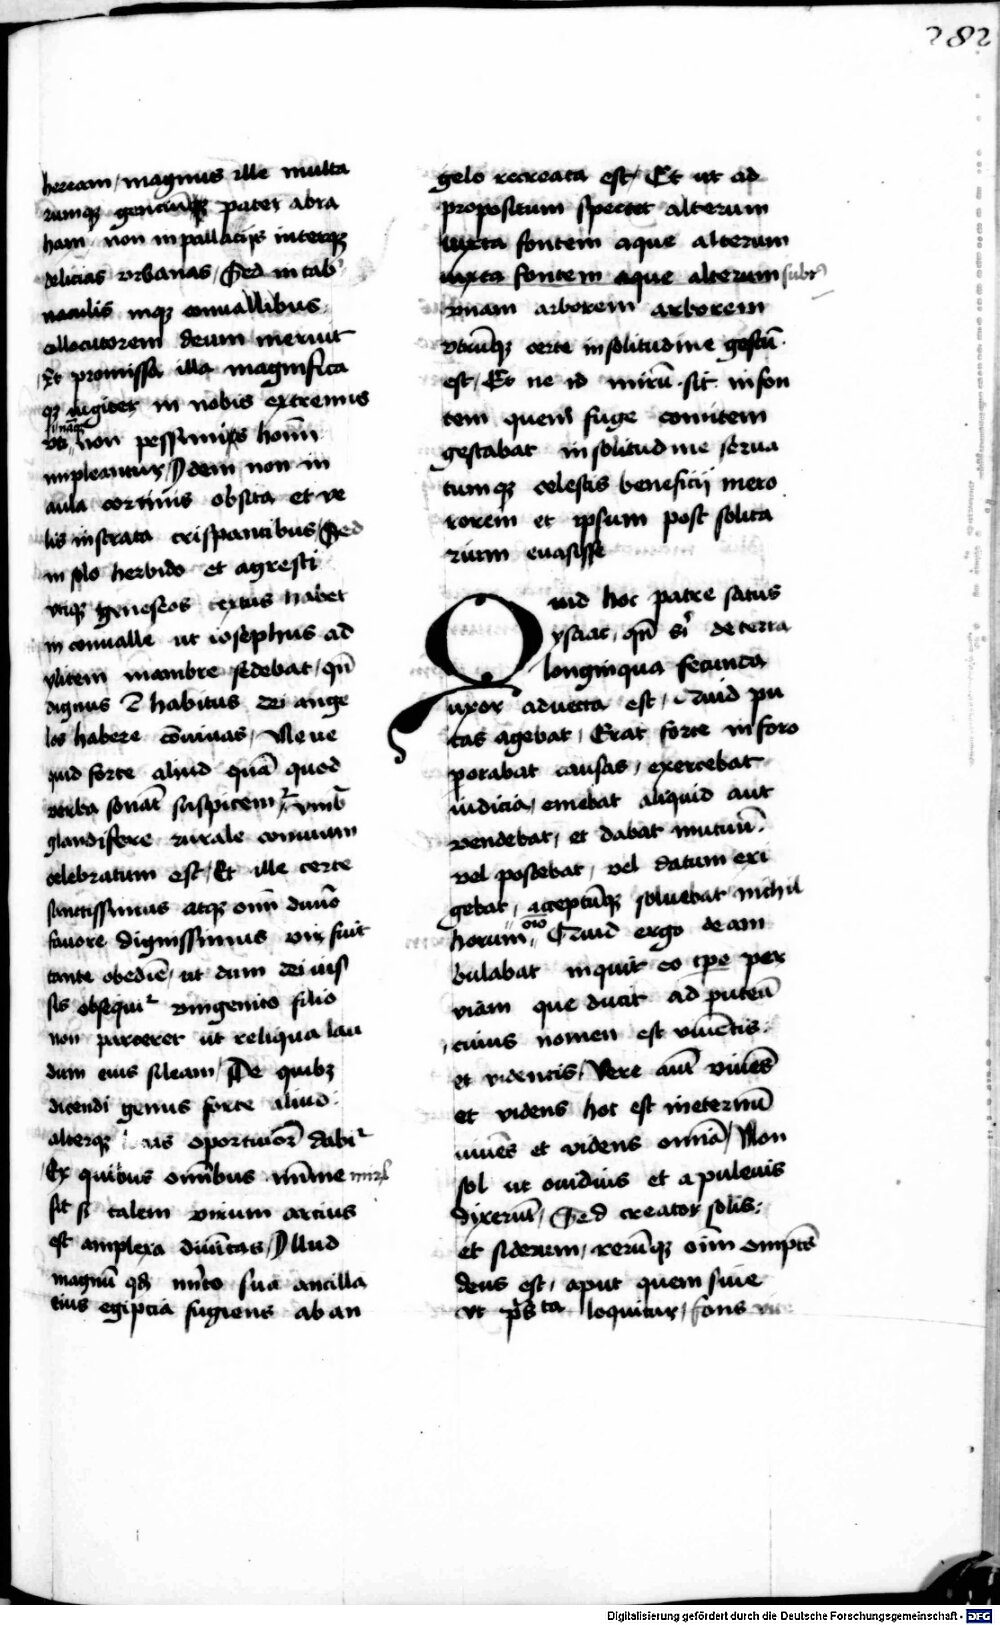 282
heream / magnus ille multa
rumqȝ genciūqȝ pater abra
ham non in pallacijs interqȝ
delicias vrbanas / Sed in tab
naculis inqȝ conuallibus
collocutorem deum meruit
Et promissa illa magnifica
qȝ iugiter in nobis extremis
non pessimis hom̄
impleantur / Idem non in
aula cortinis obsita et ve
lis instrata crispantibus / Sed
in solo herbido et agresti
vtiqȝ geneseos textus habet
in conualle ut iosephus ad
ylicem mambre sedebat / qn̄
dignus ē habitus dei ange
los habere cōuiuas / Ne ue
quid forte aliud quā quod
verba sonāt suspicemr̄ / vmb
glandifere rurale conuiuium
celebratum est / Et ille certe
sanctissimus atqȝ omī diuīo
fauore dignissimus vir fuit
tante obediē / ut dum dei ius
sis obsequir̄ vnigenito filio
non parceret ut reliqua lau
dum eius sileam / De quibȝ
dicendi genus forte aliud
alterqȝ oportunior̄ dabir̄
Ex quibus omībus mīme mirū
sit si talem virum artius
est amplexa diuītas / Illud
magnū qd̄ mr̄ito sua ancilla
eius egiptia fugiens ab an
gelo recreata est / Et ut ad
propositum spectet alterum
iuxta fontem aque alterum
iuxta fontem aque alterum subt
vnam arborem arborem
vtrūqȝ certe in solitudine gestū
est / Et ne id mirū sit in fon
tem quem fuge comitem
gestabat in solitudine serua
tumqȝ celestis beneficij mero
rorem et ipsum post solita
rium euasisse
Quid hoc patre satus
ysaac / qn̄ si de terra
longinqua secunda
uxor aduecta est / Quid pu
tas agebat / Erat forte in foro
porabat causas / exercebat
iudicia / emebat aliquid aut
vendebat / et dabat mutuū
vel poscebat / vel datum exi
gebat / acceptūqȝ soluebat nichil
horum oīo Quid ergo deam
bulabat inquit eo tpe per
viam que ducit ad puteū
cuius nomen est viuentis
et videntis / Vere autē viuēs
et videns hoc est in eternū
viuēs et videns omīa / Non
sol ut ouidius et apuleuis
dixerūt / Sed creator solis
et siderum / rerūqȝ oīm omptēs
deus est / aput quem siue
vt pˢta loquitur / fons
Digitalisierung gefördert durch die Deutsche Forschungsgemeinschaft - DFG